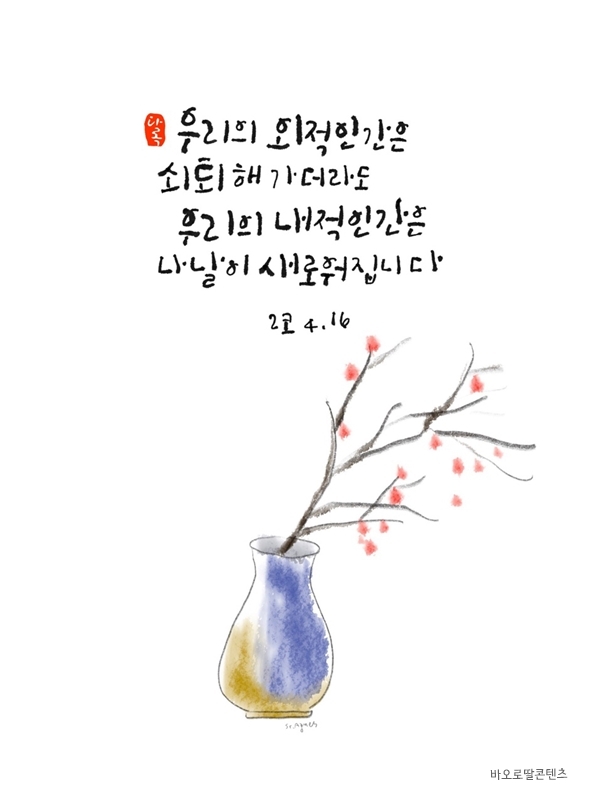 우리의 외적인간은
쇠퇴해 가더라도
우리의 내적인간은
나날이 새로워집니다
2코 4.16
Sr.Agnes
바오로딸콘텐츠